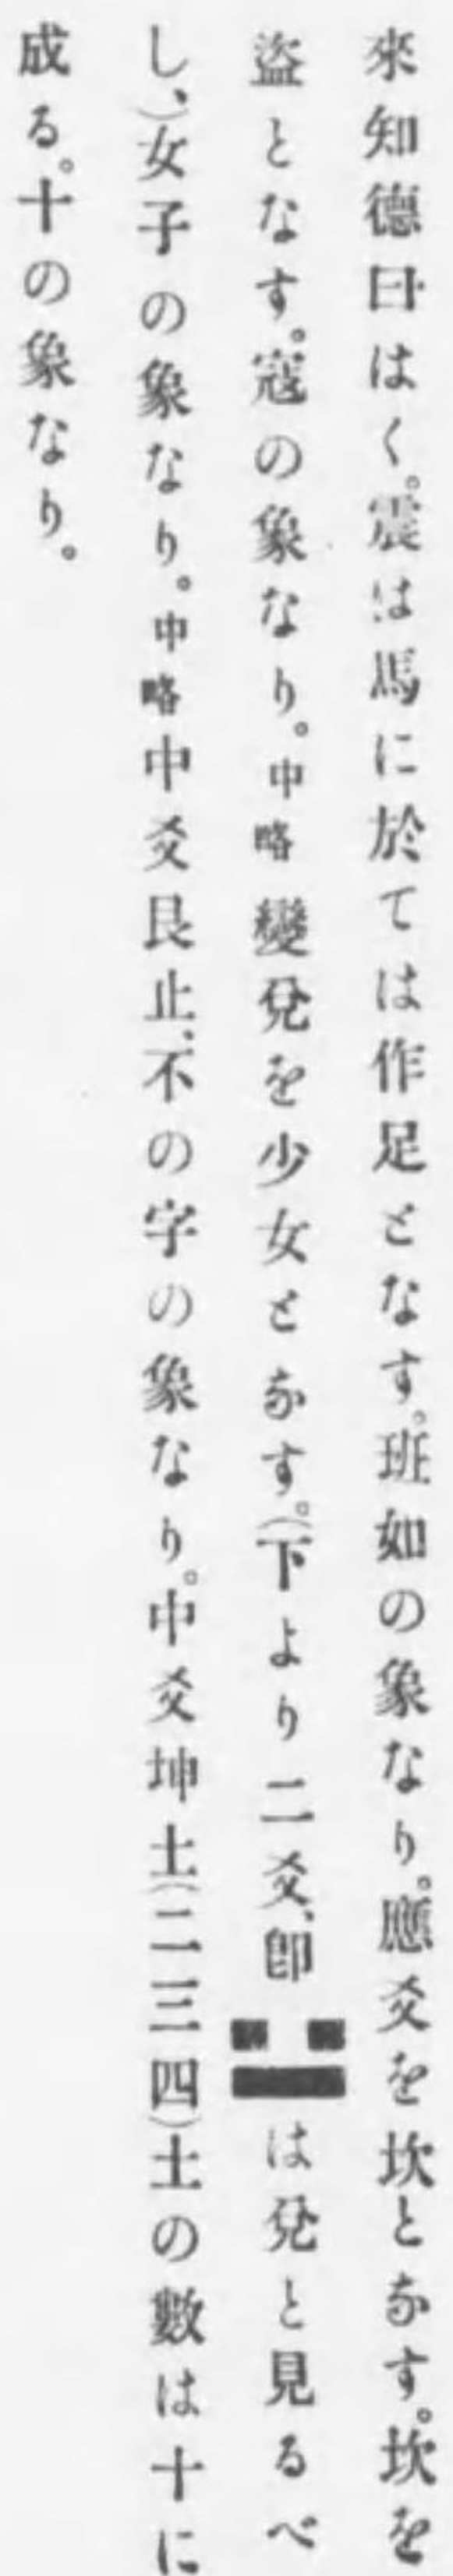 來知德曰はく。震は馬に於ては作足となす。班如の象なり。應爻を坎となす。坎を
盜となす。寇の象なり。中略 變兌を少女となす。(下より二爻、卽⚍は兌と見るべ
し、)女子の象なり。中略 中爻艮止、不の字の象なり。中爻坤土(二三四)土の數は十に
成る。十の象なり。